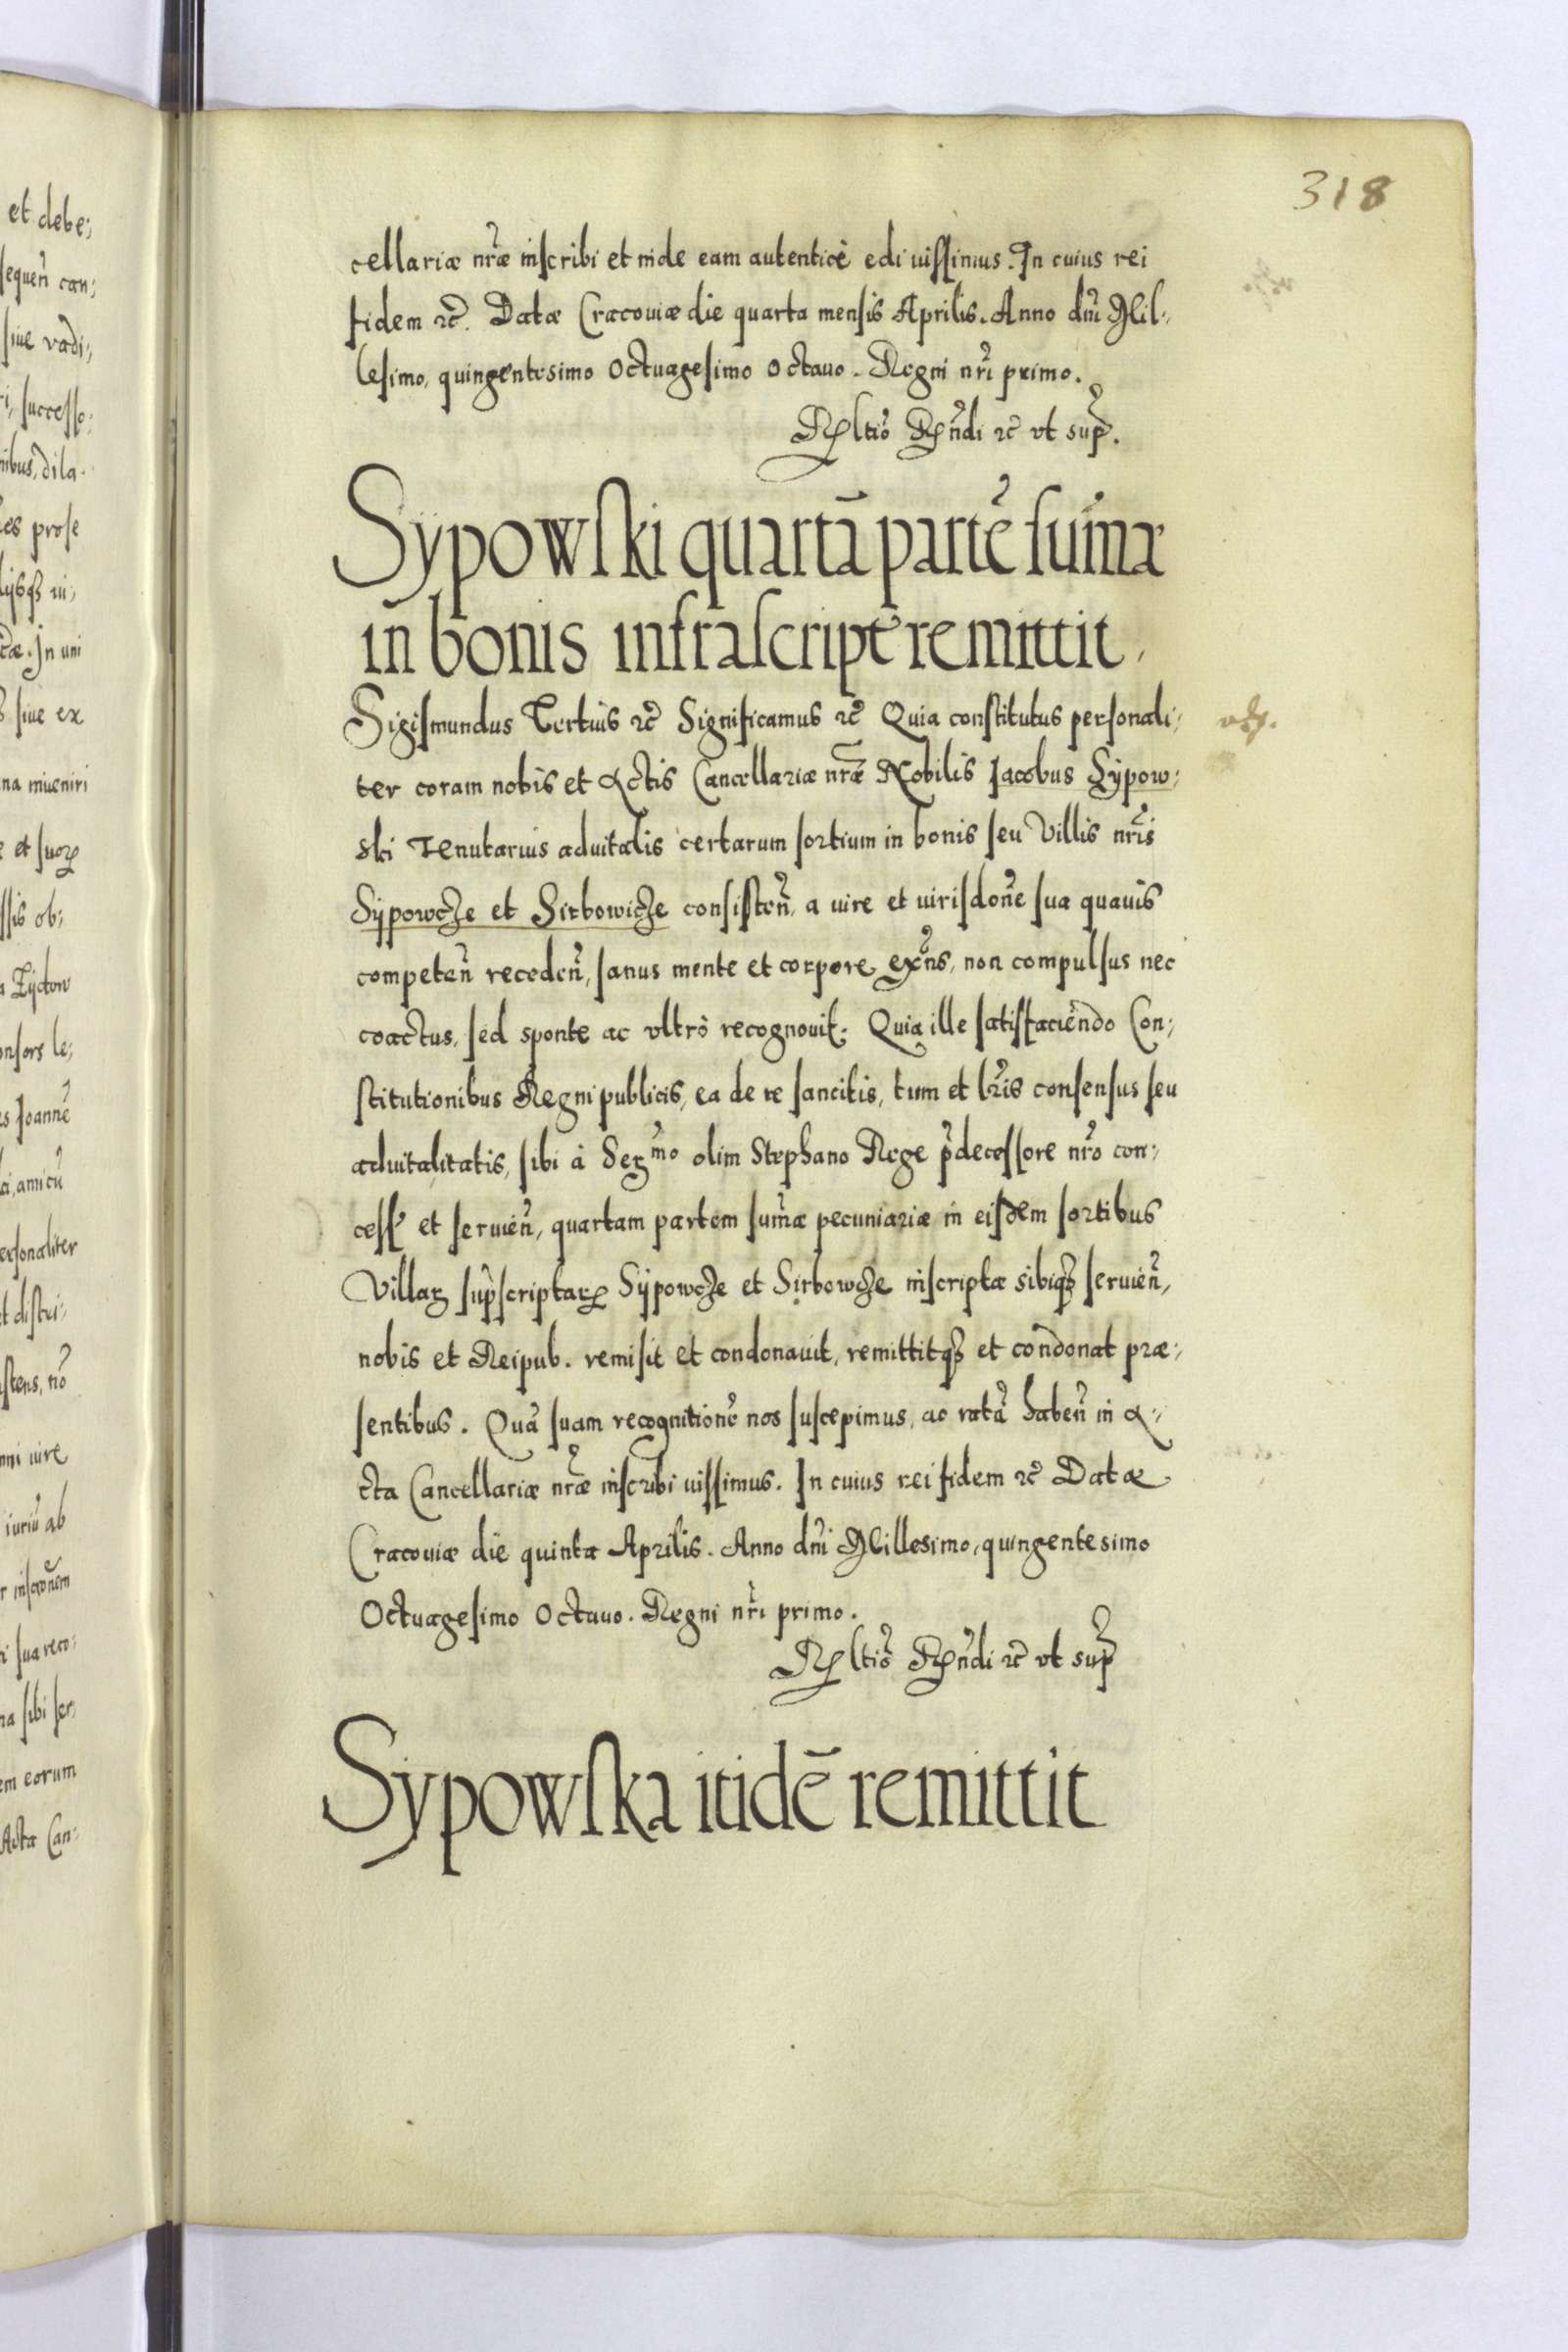 318
cellariæ nr̃æ inscribi et inde eam autenticè edi iussimus. In cuius rei
fidem ꝛc̃. Datæ Cracouiæ die quarta mensis Aprilis. Anno dn̄i Mil-
lesimo, quingentesimo Octuagesimo Octauo. Regni nr̃i primo.
Rltio Rn̄di ꝛc̃ vt sup̃.
Sypowski quartā partē sum̄æ
in bonis infrascript̄ remittit.
Sigismundus Tertius ꝛc̃ Significamus ꝛc̃ Quia constitutus personali-
ter coram nobis et Actis Cancellariæ nr̃æ Nobilis Jacobus Sypow-
ski Tenutarius aduitalis certarum sortium in bonis seu Villis nr̃is
Sypowcze et Sirbowicze consisteñ, a iure et iurisdoñe sua quauis
competeñ recedeñ, sanus mente et corpore exñs, non compulsus nec
coactus, sed sponte ac vltrò recognouit. Quia ille satisfaciendo Con-
stitutionibus Regni publicis, ea de re sancitis, tum et lr̃is consensus seu
aduitalitatis, sibi à Serᵐᵒ olim Stephano Rege p̃decessore nr̃o con-
cess̃ et seruieñ, quartam partem sum̃æ pecuniariæ in eisdem sortibus
Villaꝝ sup̃scriptaꝝ Sypowcze et Sirbowcze inscriptæ sibiqꝫ seruieñ,
nobis et Reipub. remisit et condonauit, remittitqꝫ et condonat præ-
sentibus. Quā suam recognitionē nos suscepimus, ac ratā habeñ in A-
cta Cancellariæ nr̃æ inscribi iussimus. In cuius rei fidem ꝛc̃ Datæ
Cracouiæ die quinta Aprilis. Anno dn̄i Millesimo, quingentesimo
Octuagesimo Octauo. Regni nr̃i primo.
Rltio Rn̄di ꝛc̃ vt sup̃
Sypowska itidē remittit